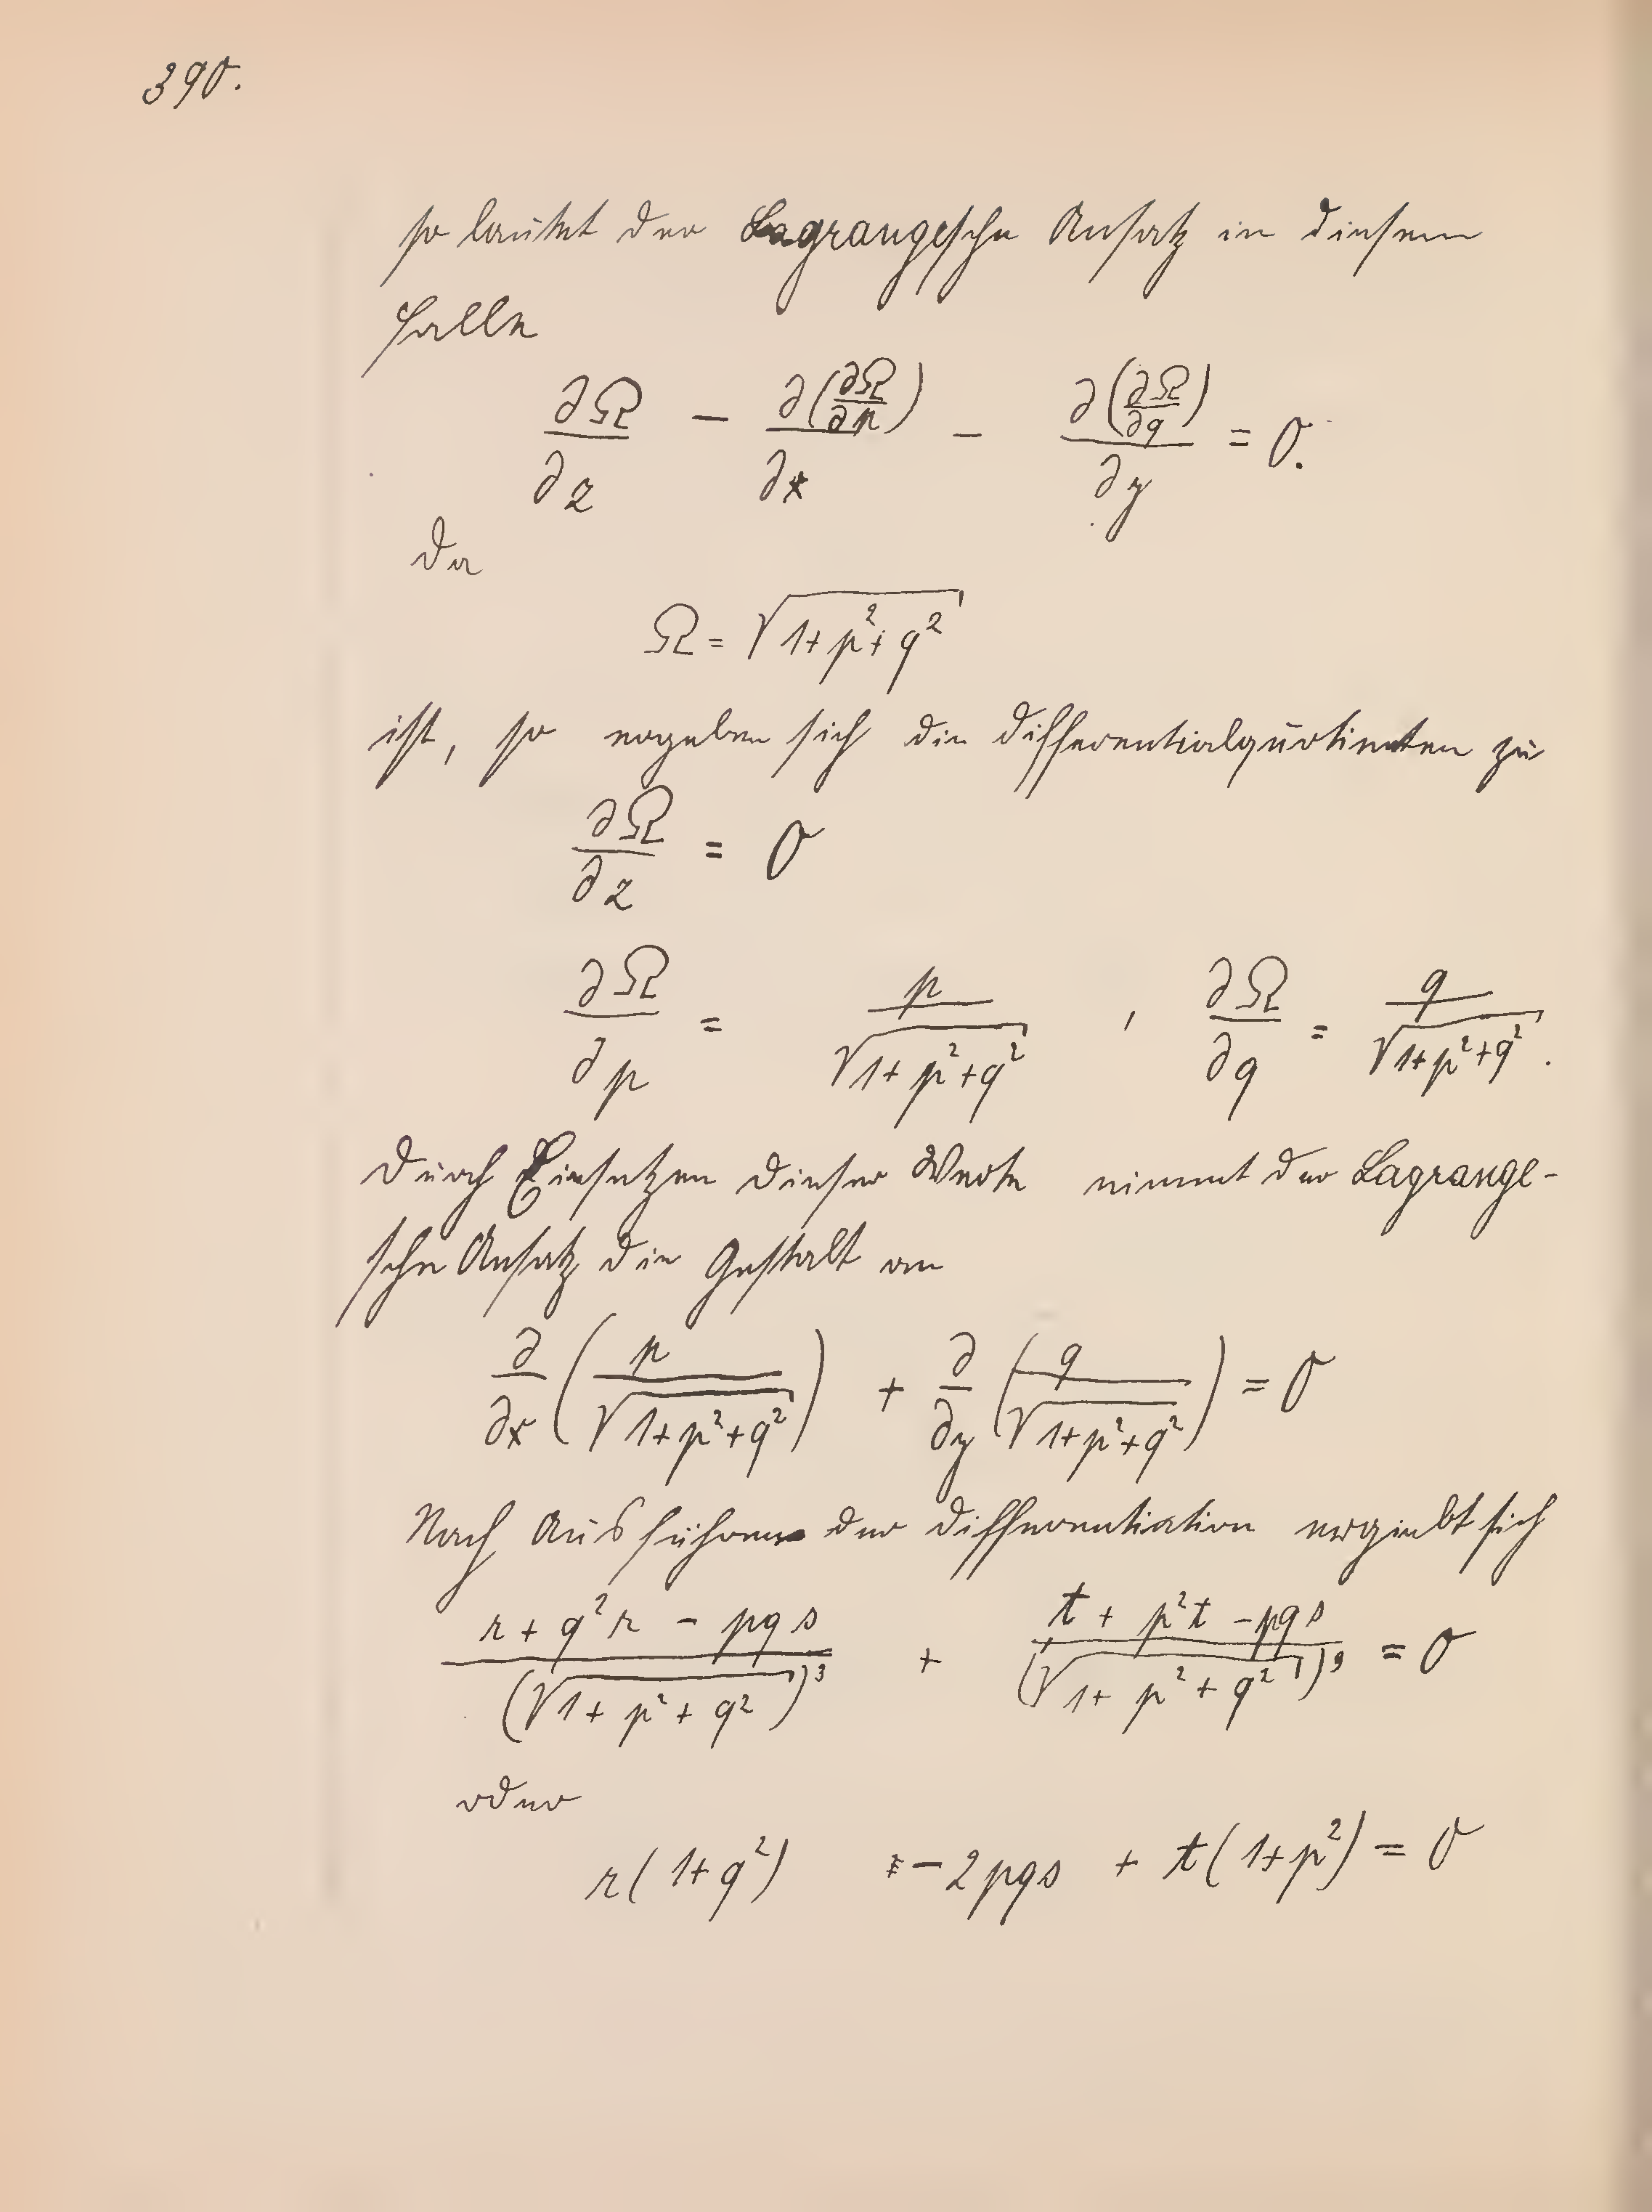 390.
so lautet der Lagrangesche Ansatz in diesem
Falle
∂Ω/∂z − ∂(∂Ω/∂p)/∂x − ∂(∂Ω/∂q)/∂y = 0.
Da
Ω = √(1+p²+q²)
ist, so ergeben sich die Differentialquotienten zu
∂Ω/∂z = 0
∂Ω/∂p = p/√(1+p²+q²) , ∂Ω/∂q = q/√(1+p²+q²) .
Durch Einsetzen dieser Werte nimmt der Lagrange-
sche Ansatz die Gestalt an
∂/∂x (p/√(1+p²+q²)) + ∂/∂y (q/√(1+p²+q²)) = 0
Nach Ausführen der Differentiation ergiebt sich
(r + q²r − pqs)/(√(1+p²+q²))³ + (t + p²t − pqs)/(√(1+p²+q²))³ = 0
oder
r(1+q²) − 2pqs + t(1+p²) = 0